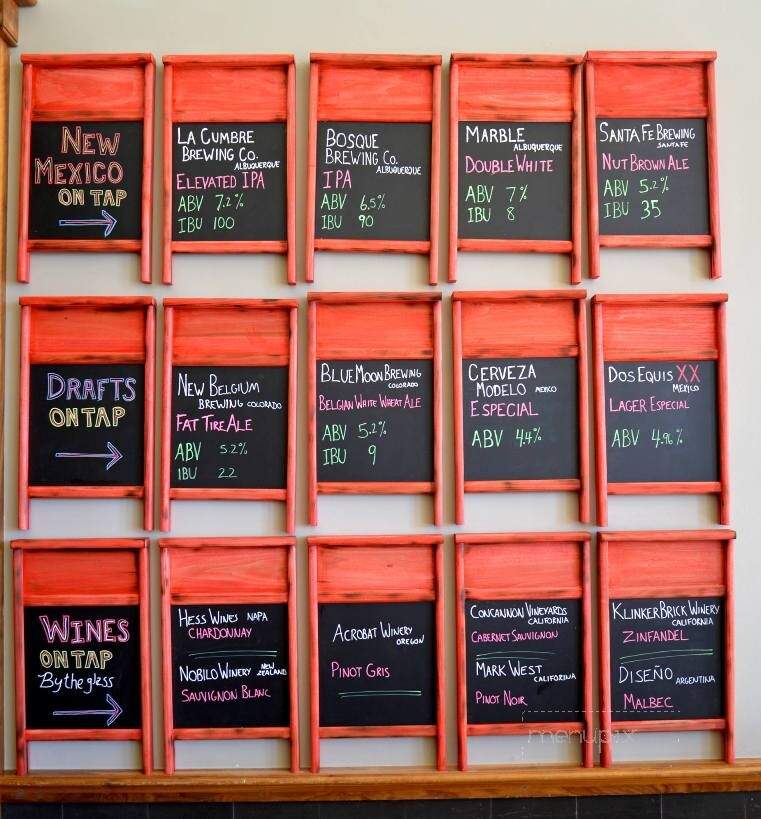 NEW
MEXICO
ON TAP
LA CUMBRE
BREWING CO.
ALBUQUERQUE
ELEVATED IPA
ABV 7.2%
IBU 100
BOSQUE
BREWING CO.
ALBUQUERQUE
IPA
ABV 6.5%
IBU 90
MARBLE
ALBUQUERQUE
DOUBLE WHITE
ABV 7%
IBU 8
SANTA FE BREWING
SANTA FE
NUT BROWN ALE
ABV 5.2%
IBU 35
DRAFTS
ON TAP
NEW BELGIUM
BREWING COLORADO
FAT TIRE ALE
ABV 5.2%
IBU 22
BLUE MOON BREWING
COLORADO
BELGIAN WHITE WHEAT ALE
ABV 5.2%
IBU 9
CERVEZA
MODELO MEXICO
ESPECIAL
ABV 4.4%
DOS EQUIS XX
MEXICO
LAGER ESPECIAL
ABV 4.96%
WINES
ON TAP
By the glass
HESS WINES NAPA
CHARDONNAY
NOBILO WINERY NEW
ZEALAND
SAUVIGNON BLANC
ACROBAT WINERY
OREGON
PINOT GRIS
CONCANNON VINEYARDS
CALIFORNIA
CABERNET SAUVIGNON
MARK WEST
CALIFORINA
PINOT NOIR
KLINKER BRICK WINERY
CALIFORNIA
ZINFANDEL
DISEÑO ARGENTINA
MALBEC
menupix